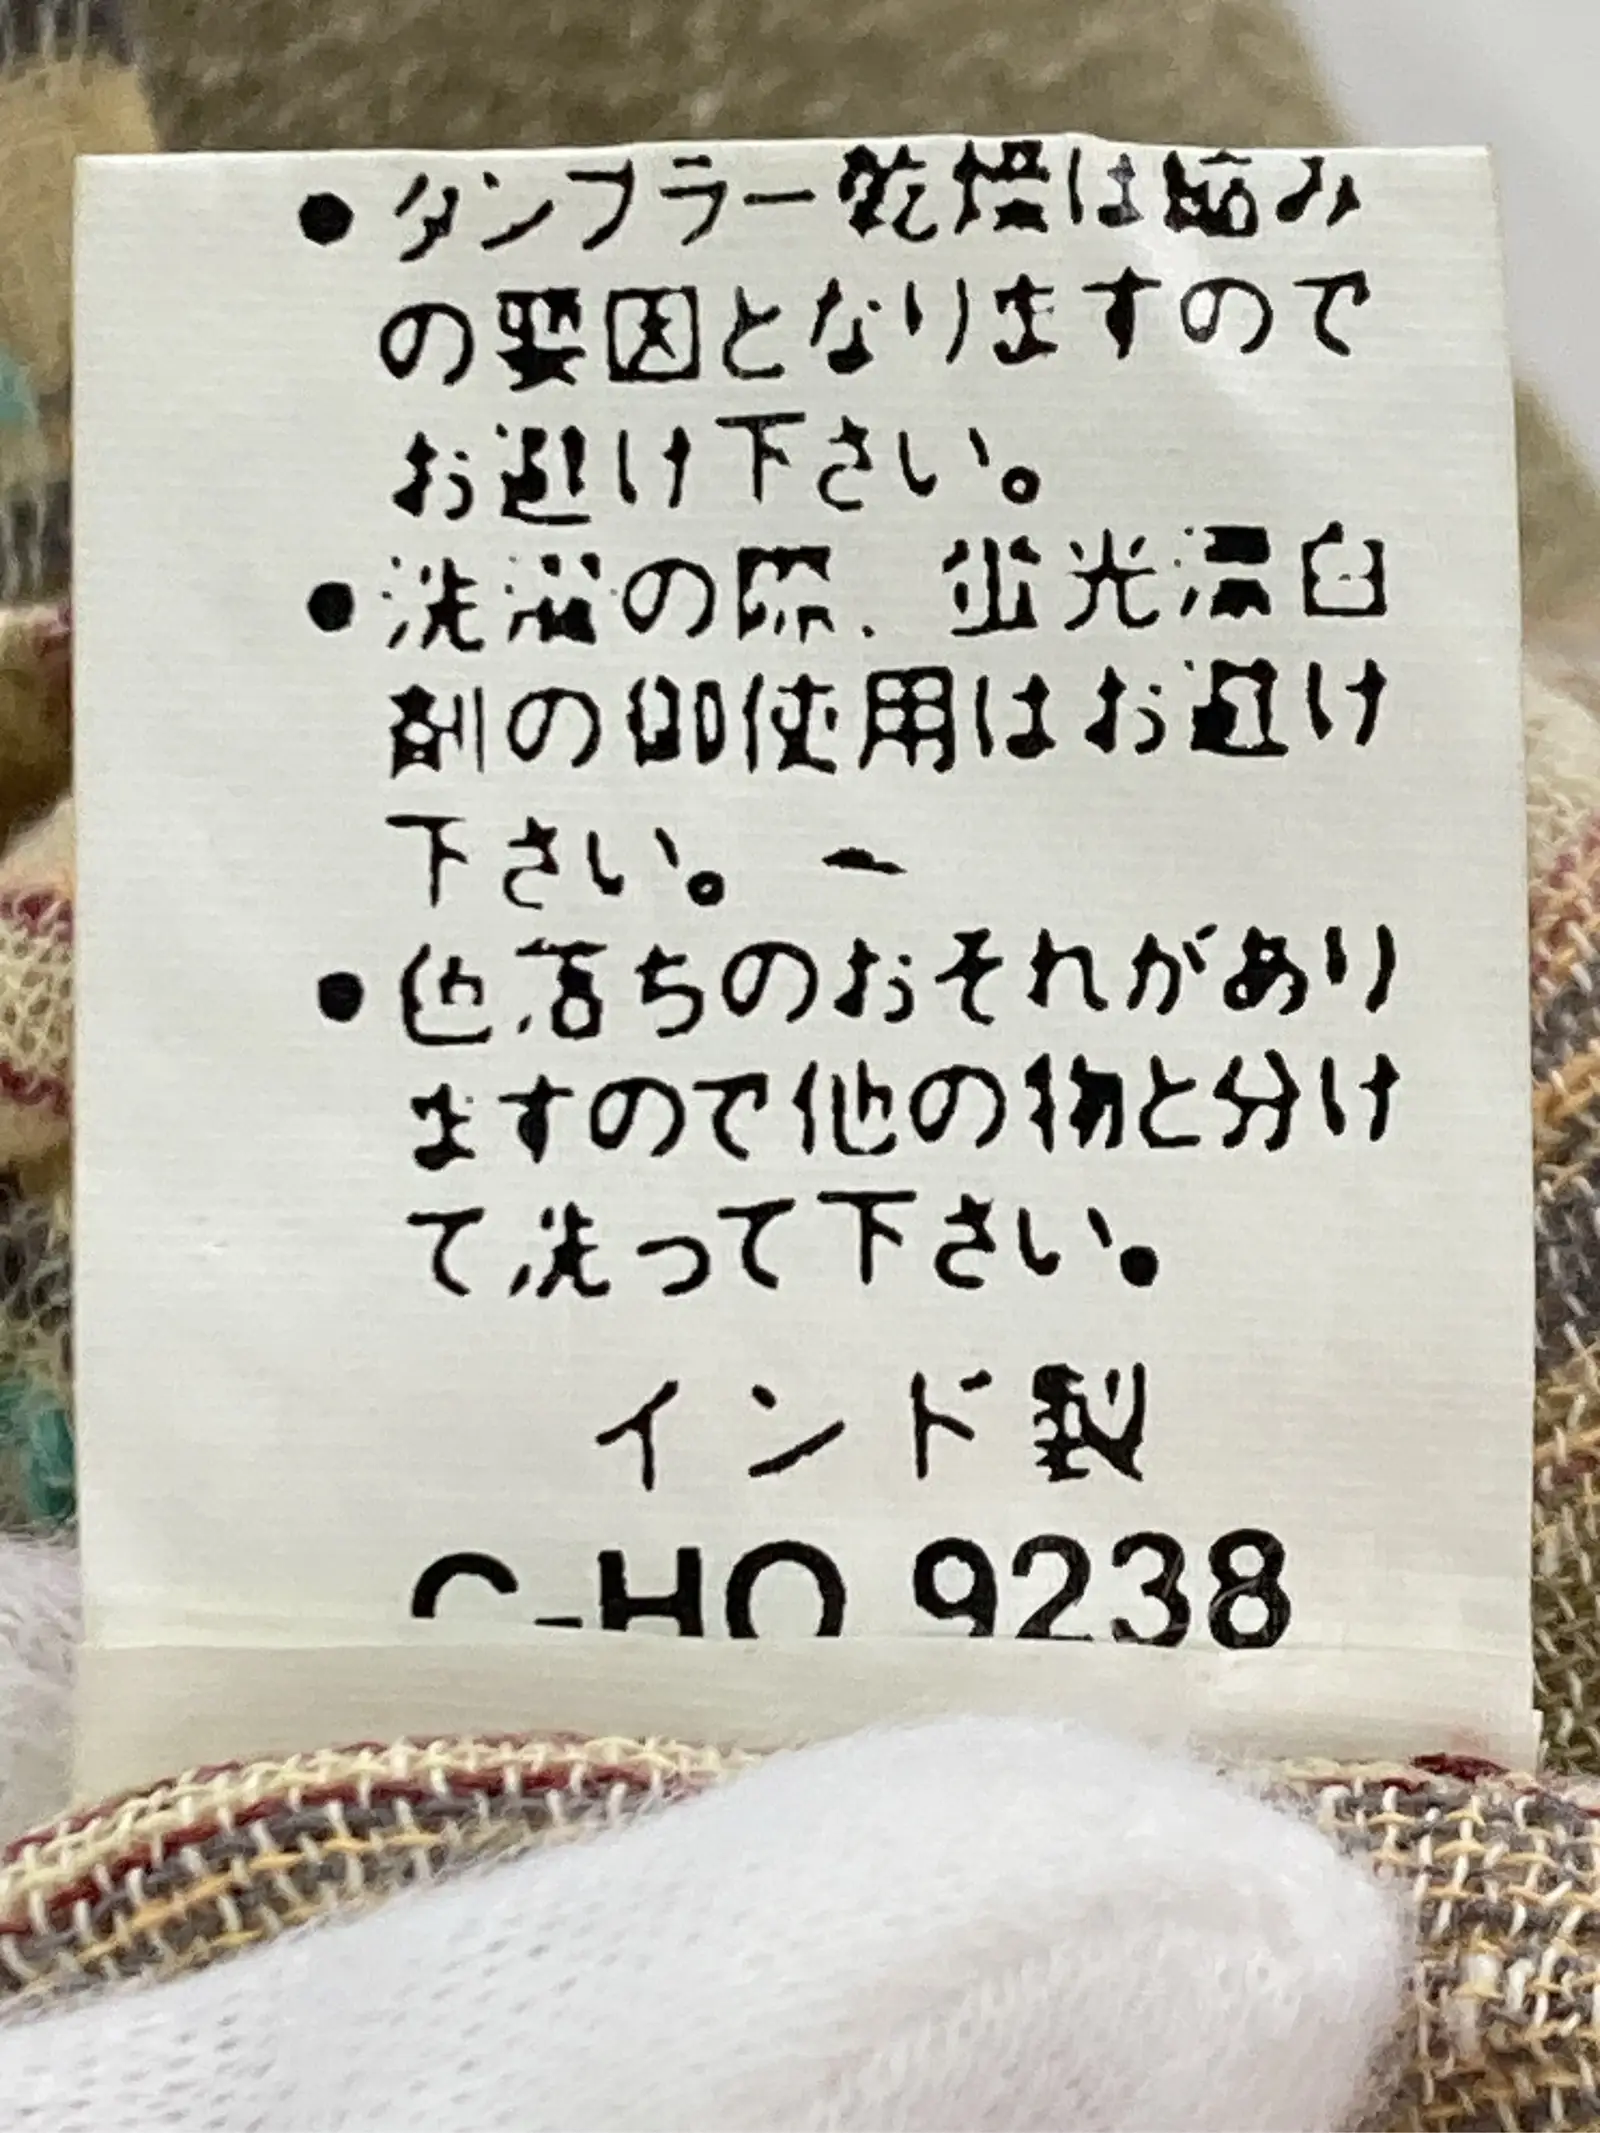 ●タンブラー乾燥は縮み
の要因となりますので
お避け下さい。
●洗濯の際、蛍光漂白
剤の御使用はお避け
下さい。
●色落ちのおそれがあり
ますので他の物と分け
て洗って下さい。
インド製
9238